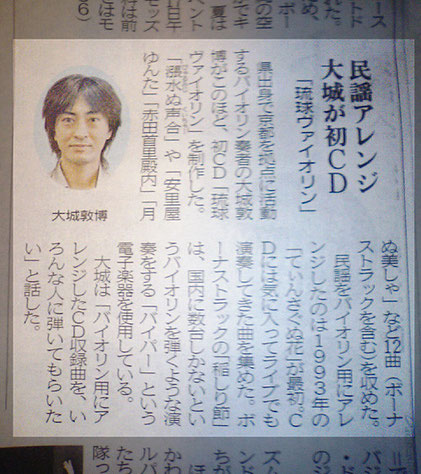 民謡アレンジ
大城が初CD
「琉球ヴァイオリン」
県出身で京都を拠点に活動
するバイオリン奏者の大城敦
博がこのほど、初CD「琉球
ヴァイオリン」を制作した。
「漲水ぬ声合」や「安里屋
ゆんた」「赤田首里殿内」「月
ぬ美しゃ」など12曲（ボーナ
ストラックを含む）を収めた。
民謡をバイオリン用にアレ
ンジしたのは1993年の
「てぃんさぐぬ花」が最初。C
Dには気に入ってライブでも
演奏してきた曲を集めた。ボ
ーナストラックの「稲しり節」
は、国内に数台しかないとい
うバイオリンを弾くような演
奏をする「バイパー」という
電子楽器を使用している。
大城は「バイオリン用にア
レンジしたCD収録曲を、い
ろんな人に弾いてもらいた
い」と話した。
大城敦博